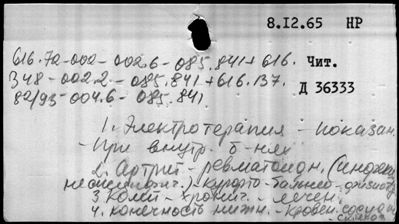 8.I2.65 НР
616.72-002-002.6-085.841+616.
Чит.
348-002.2-085.841+616.137.
Д 36333
82/93-004.6-085.841.
1. Электротерапия - показан.
- При внутр. б-нях
2. Артрит - ревматоидн. (инфекц.
неспецифич.) - курорто-бальнео-физиот.
3. Колит - хронич. - лечен.
4. Конечность нижн. - кровен. сосуды